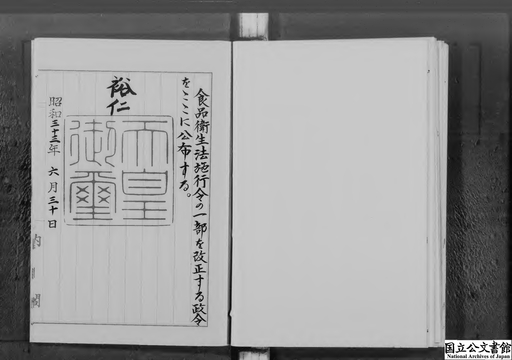 食品衛生法施行令の一部を改正する政令
をここに公布する。
裕仁
天皇
御璽
昭和三十三年 六月三十日
内閣
国立公文書館
National Archives of Japan